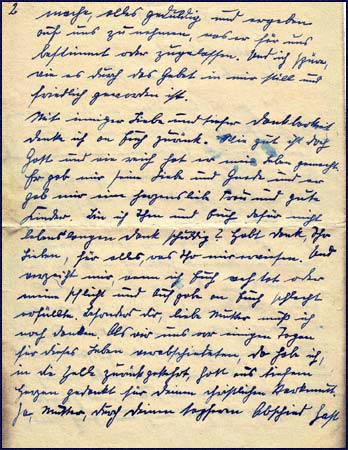 2
mache, alles geduldig und ergeben
auf uns zu nehmen, was er für uns
bestimmt oder zugelassen. Und ich spüre,
wie es durch das Gebet in mir still und
friedlich geworden ist.
Mit inniger Liebe und tiefer Dankbarkeit
denke ich an Euch zurück. Wie gut ist doch
Gott und wie reich hat er mein Leben gemacht.
Er gab mir seine Liebe und Gnade und er
gab mir eine herzensliebe Frau und gute
Kinder. Bin ich Ihm und Euch dafür nicht
lebenslangen Dank schuldig? Habt Dank, Ihr
Lieben, für alles, was Ihr mir erwiesen. Und
verzeiht mir, wenn ich Euch weh tat oder
meine Pflicht und Aufgabe an Euch schlecht
erfüllte. Besonders dir, liebe Mutter muß ich
noch danken. Als wir uns vor einigen Tagen
für dieses Leben verabschiedeten, da habe ich,
in die Zelle zurückgekehrt, Gott aus tiefem
Herzen gedankt für deinen christlichen Starkmut.
Ja, Mutter, durch deinen tapferen Abschied hast